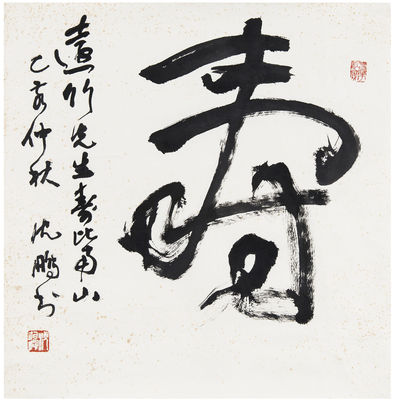 寿
遠竹先生寿比南山
乙亥仲秋 沈鹏书